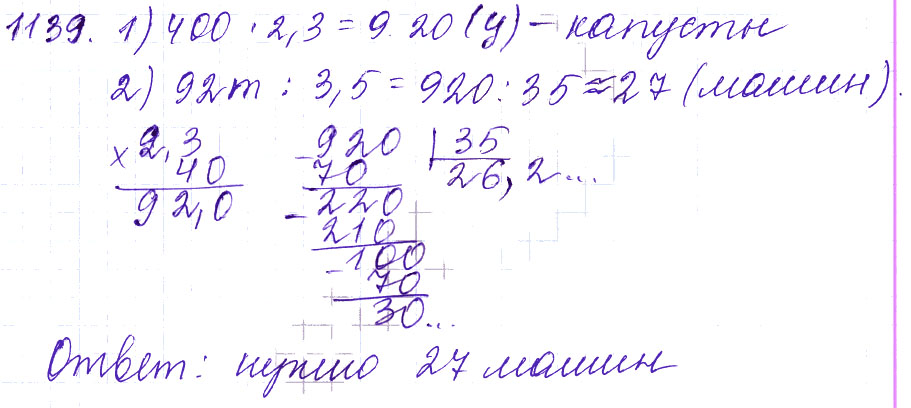 1139. 1) 400 · 2,3 = 920 (ц) – капусты
2) 92т : 3,5 = 920 : 35 ≈ 27 (машин).
× 2,3
40
92,0
– 920 | 35
70 26,2...
– 220
210
– 100
70
30...
Ответ: нужно 27 машин